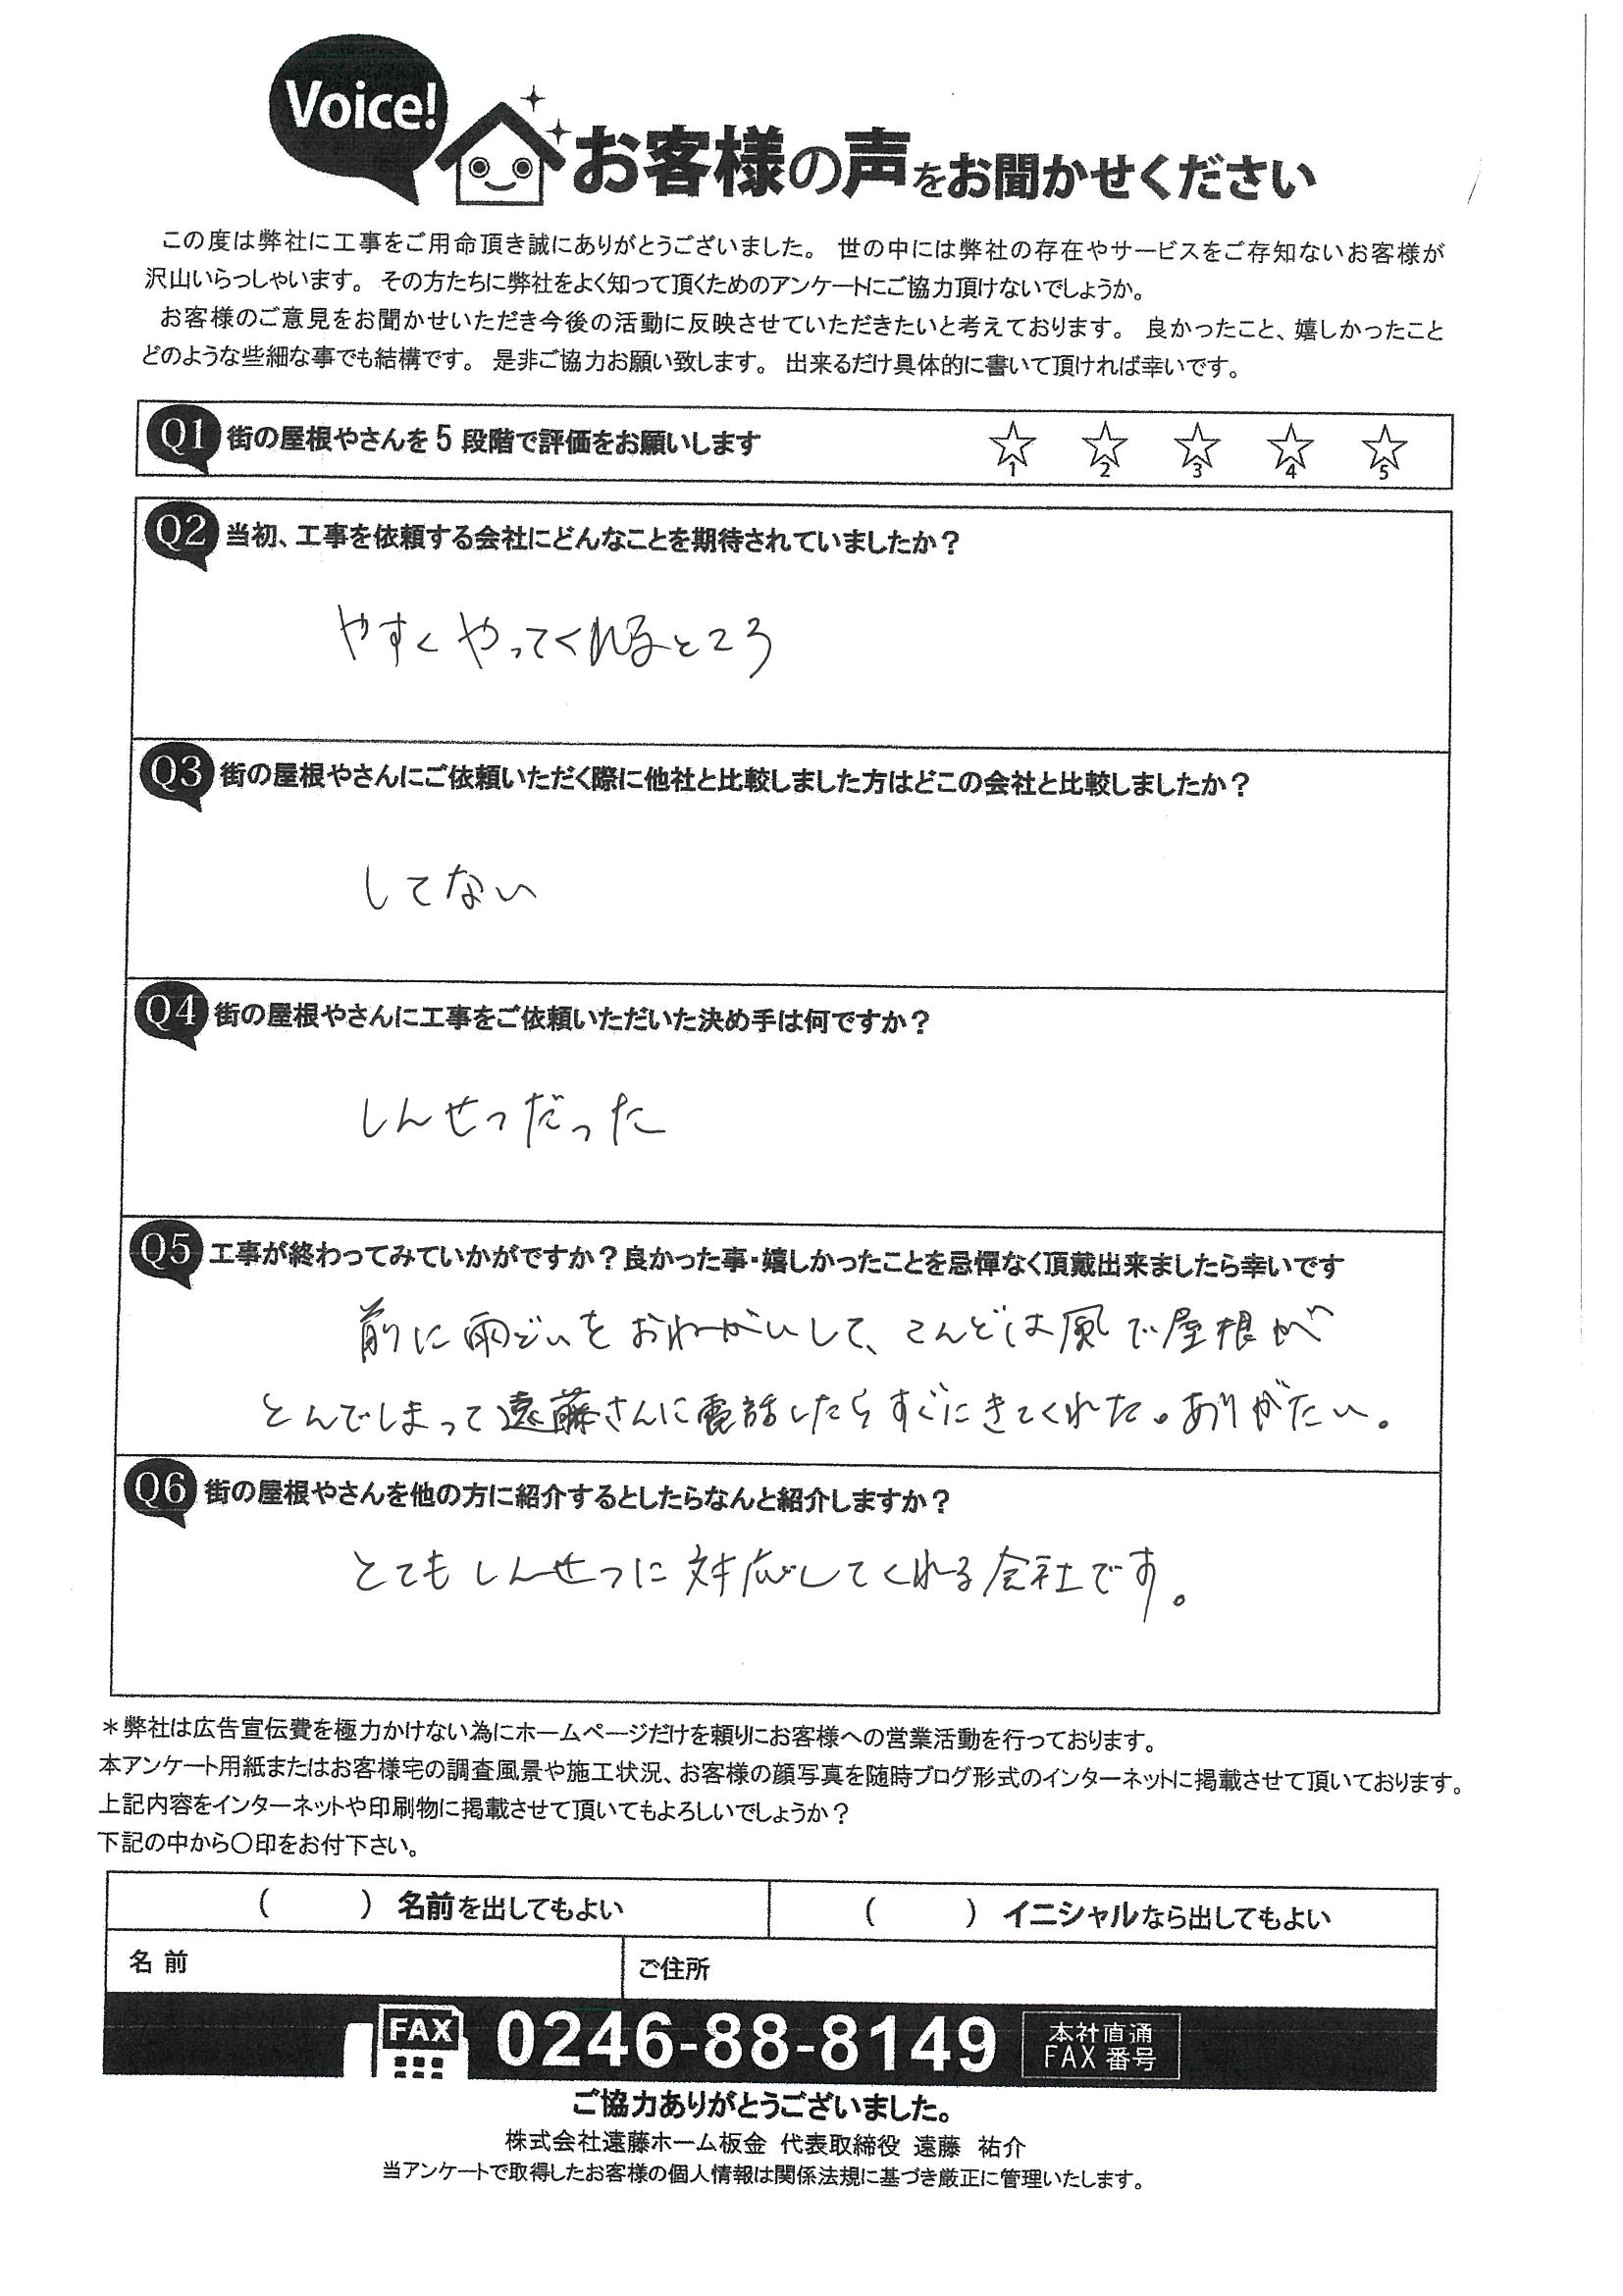 Voice!
お客様の声をお聞かせください
この度は弊社に工事をご用命頂き誠にありがとうございました。 世の中には弊社の存在やサービスをご存知ないお客様が
沢山いらっしゃいます。 その方たちに弊社をよく知って頂くためのアンケートにご協力頂けないでしょうか。
お客様のご意見をお聞かせいただき今後の活動に反映させていただきたいと考えております。 良かったこと、嬉しかったこと
どのような些細な事でも結構です。 是非ご協力お願い致します。 出来るだけ具体的に書いて頂ければ幸いです。
Q1 街の屋根やさんを5段階で評価をお願いします ☆1 ☆2 ☆3 ☆4 ☆5
Q2 当初、工事を依頼する会社にどんなことを期待されていましたか？
やすくやってくれるところ
Q3 街の屋根やさんにご依頼いただく際に他社と比較しました方はどこの会社と比較しましたか？
してない
Q4 街の屋根やさんに工事をご依頼いただいた決め手は何ですか？
しんせつだった
Q5 工事が終わってみていかがですか？良かった事・嬉しかったことを忌憚なく頂戴出来ましたら幸いです
前に雨どいをおねがいして、こんどは風で屋根が
とんでしまって遠藤さんに電話したらすぐにきてくれた。ありがたい。
Q6 街の屋根やさんを他の方に紹介するとしたらなんと紹介しますか？
とてもしんせつに対応してくれる会社です。
＊弊社は広告宣伝費を極力かけない為にホームページだけを頼りにお客様への営業活動を行っております。
本アンケート用紙またはお客様宅の調査風景や施工状況、お客様の顔写真を随時ブログ形式のインターネットに掲載させて頂いております。
上記内容をインターネットや印刷物に掲載させて頂いてもよろしいでしょうか？
下記の中から〇印をお付下さい。
（　　　）名前を出してもよい （　　　）イニシャルなら出してもよい
名 前 ご住所
FAX 0246-88-8149 本社直通
FAX 番号
ご協力ありがとうございました。
株式会社遠藤ホーム板金 代表取締役 遠藤 祐介
当アンケートで取得したお客様の個人情報は関係法規に基づき厳正に管理いたします。